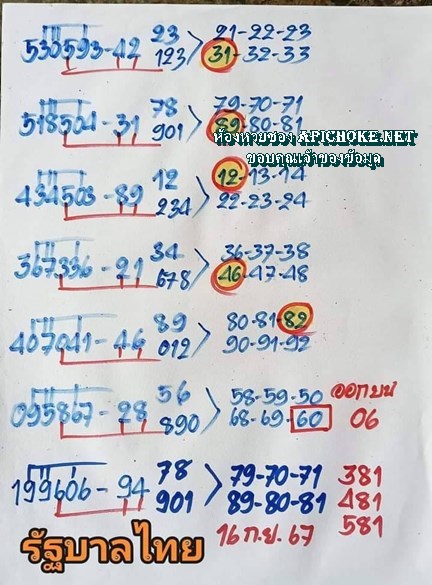 530593-42 23 21-22-23
123 31-32-33
518504-31 78 79-70-71
901 89-80-81
ห้องหวยซอง APICHOKE.NET
ขอบคุณเจ้าของข้อมูล
434503-89 12 12-13-14
234 22-23-24
367336-21 34 36-37-38
678 46-47-48
407041-46 89 80-81-82
012 90-91-92
095867-28 56 58-59-50 ออกบน
890 68-69-60 06
199606-94 78 79-70-71 381
901 89-80-81 481
รัฐบาลไทย 16 ก.ย. 67 581